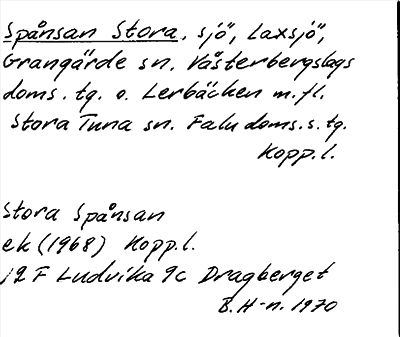 Spånsan Stora, sjö, Laxsjö,
Grangärde sn, Västerbergslags
doms. tg. o. Lerbäcken m.fl.
Stora Tuna sn. Falu doms.s. tg.
Kopp.l.
Stora Spånsan
ek (1968) Kopp.l.
12 F Ludvika 9c Dragberget
B.H-n. 1970